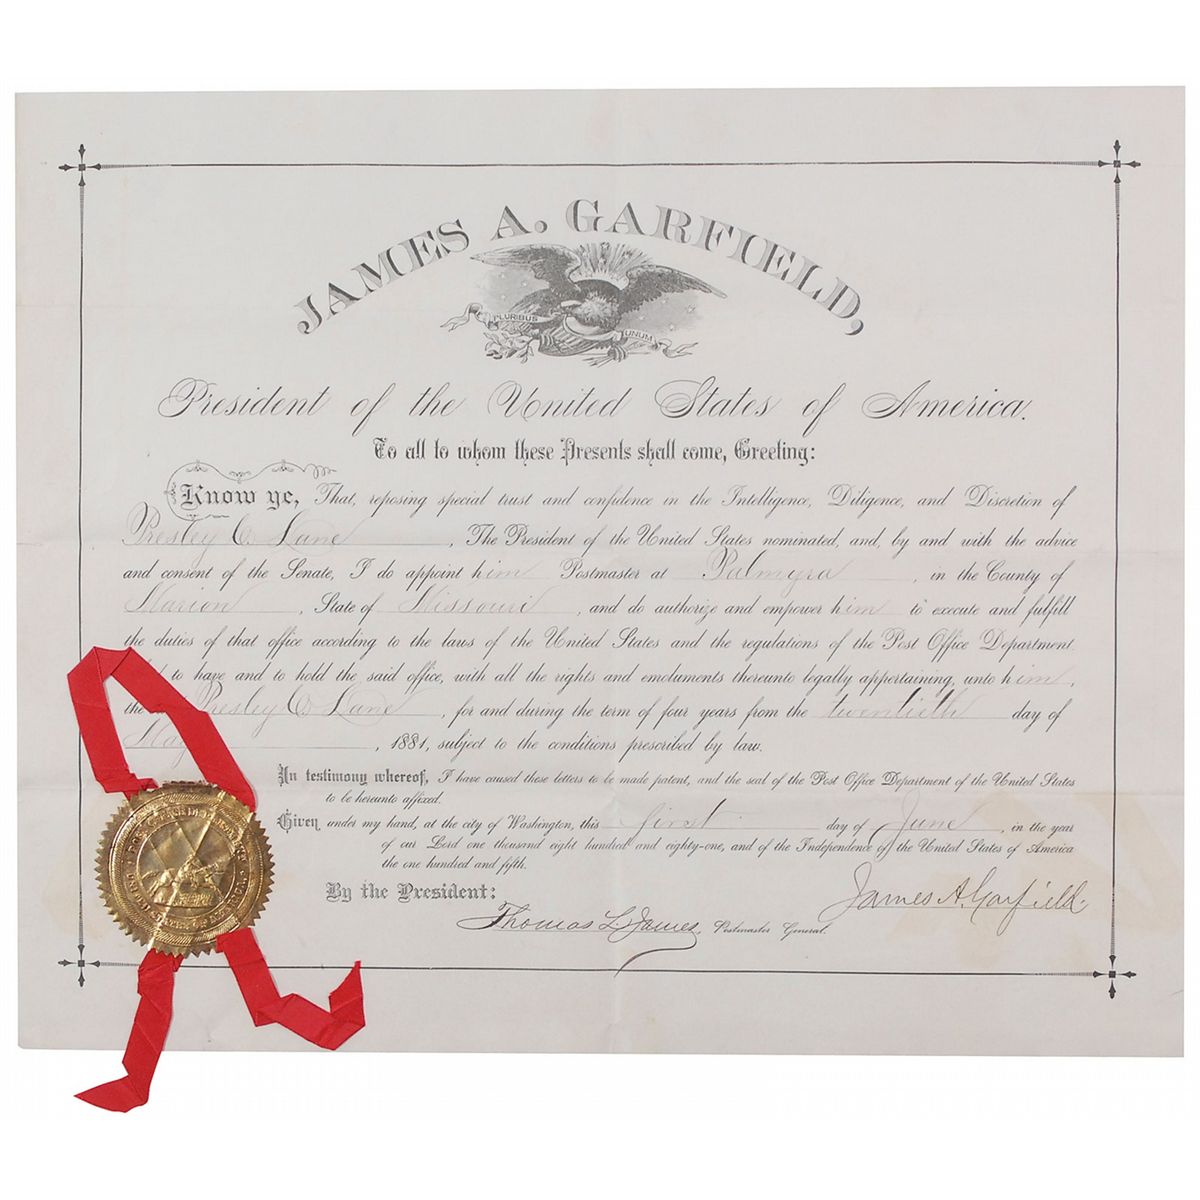 JAMES A. GARFIELD,
PLURIBUS UNUM
President of the United States of America.
To all to whom these Presents shall come, Greeting:
Know ye, That, reposing special trust and confidence in the Intelligence, Diligence, and Discretion of
Presley C Lane, The President of the United States nominated, and, by and with the advice
and consent of the Senate, I do appoint him Postmaster at Palmyra, in the County of
Marion, State of Missouri, and do authorize and empower him to execute and fulfill
the duties of that office according to the laws of the United States and the regulations of the Post Office Department.
to have and to hold the said office, with all the rights and emoluments thereunto legally appertaining, unto him,
the Presley C Lane, for and during the term of four years from the twentieth day of
May, 1881, subject to the conditions prescribed by law.
In testimony whereof, I have caused these letters to be made patent, and the seal of the Post Office Department of the United States
to be hereunto affixed.
Given under my hand, at the city of Washington, this first day of June, in the year
of our Lord one thousand eight hundred and eighty-one, and of the Independence of the United States of America
the one hundred and fifth.
By the President:
James A. Garfield
Thomas L. James, Postmaster General.
POST OFFICE DEPARTMENT
UNITED STATES OF AMERICA